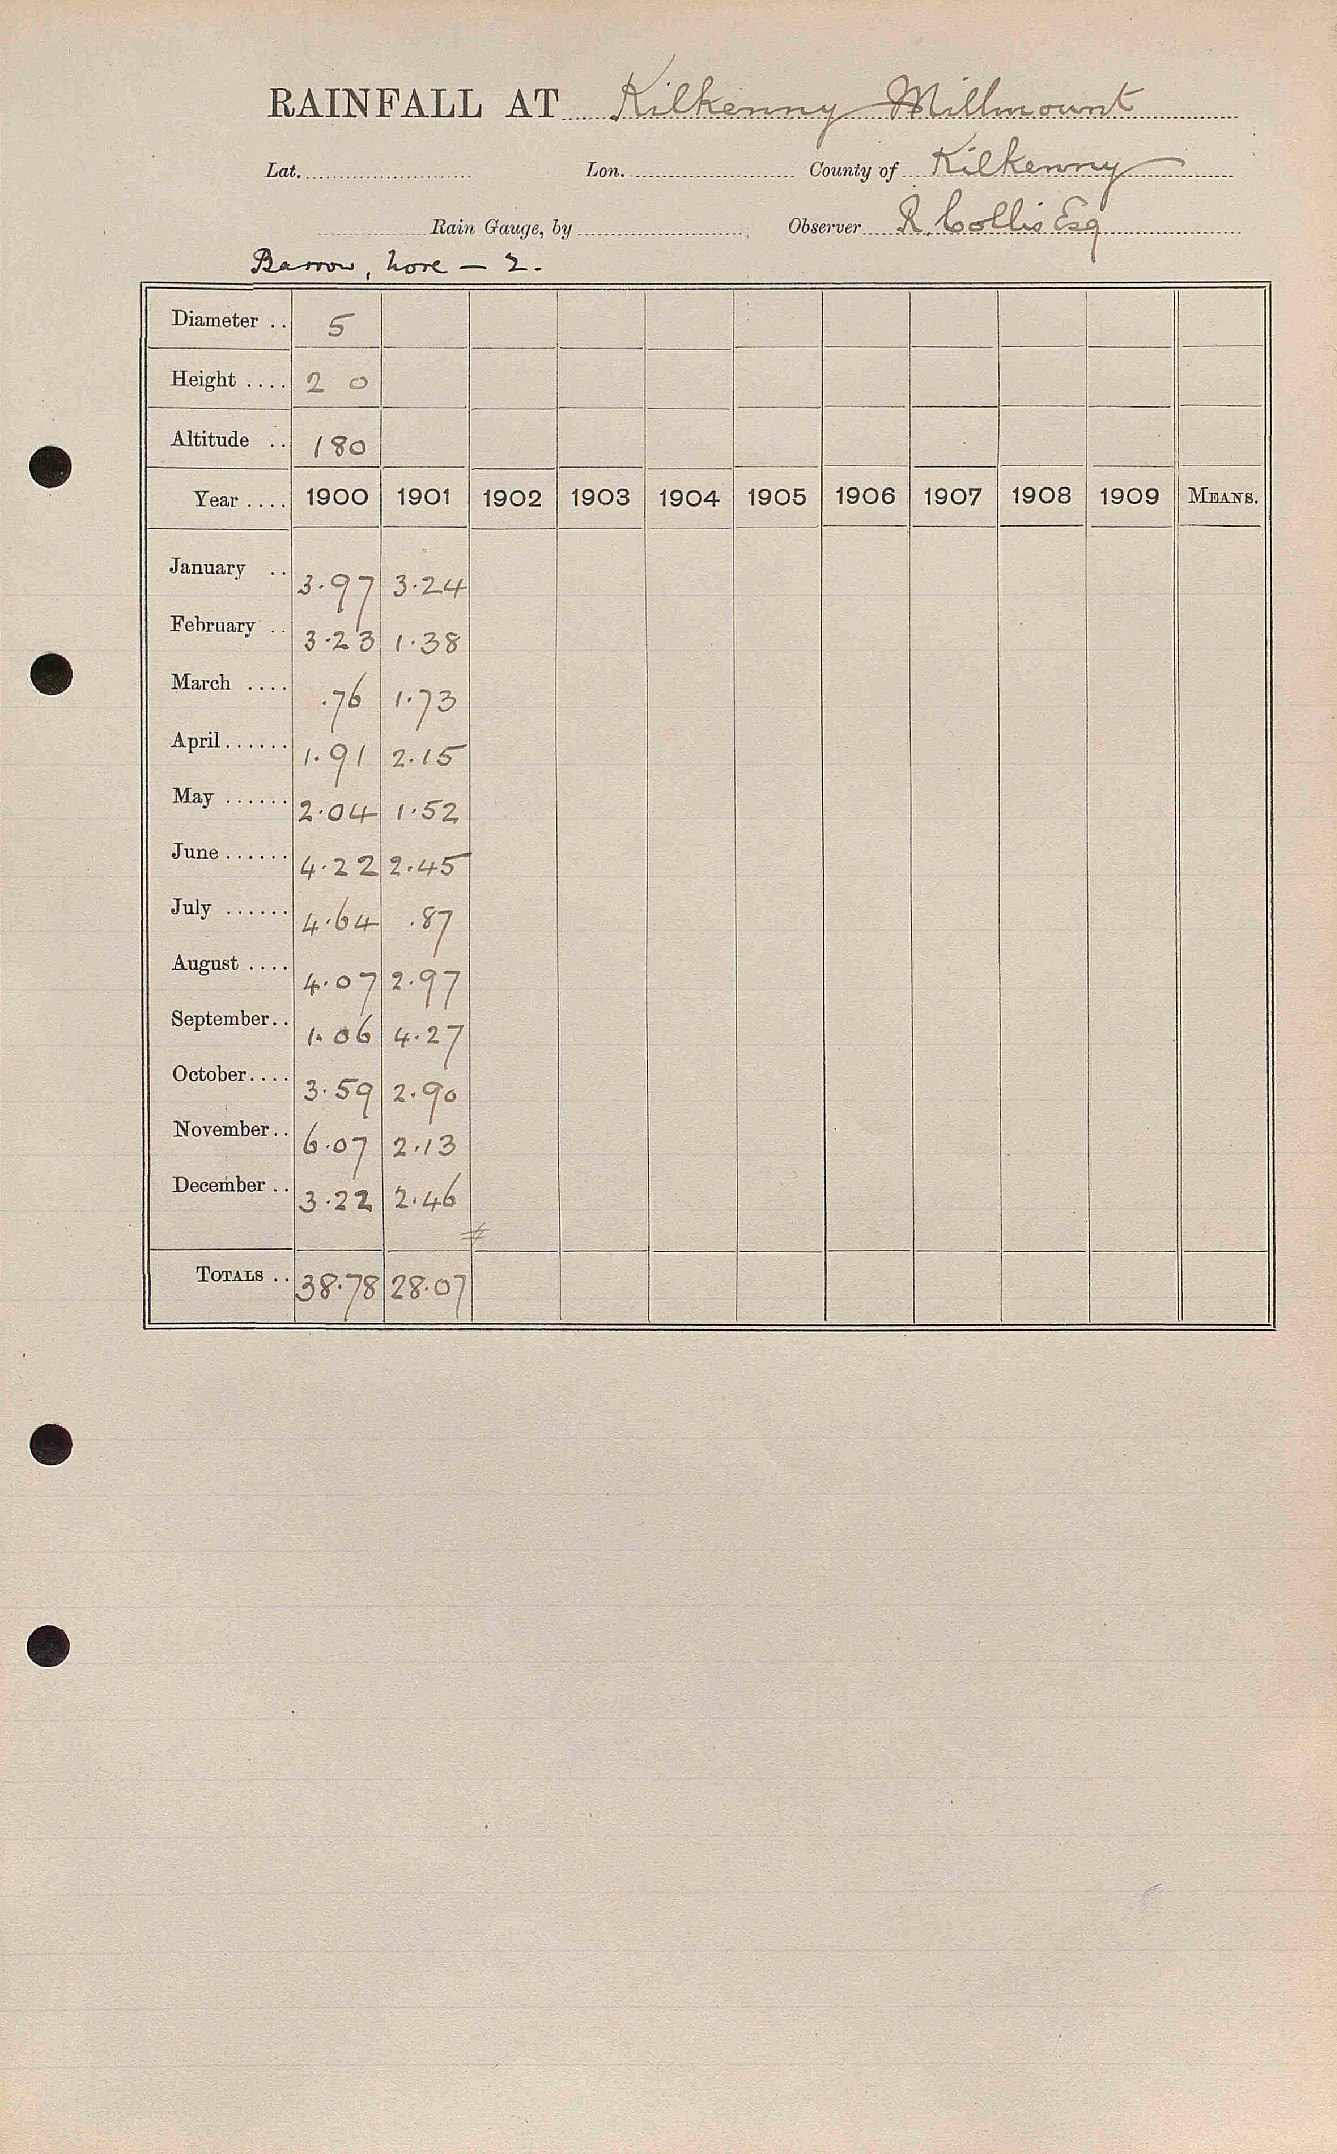 RAINFALL AT Kilkenny Millmount
Lat. Lon. County of Kilkenny
Rain Gauge, by Observer R. Collis Esq
Barrow, Nore — 2.
Diameter .. 5
Height .... 2 0
Altitude .. 180
Year .... 1900 1901 1902 1903 1904 1905 1906 1907 1908 1909 MEANS.
January .. 3.97 3.24
February .. 3.23 1.38
March .... .76 1.73
April...... 1.91 2.15
May ...... 2.04 1.52
June...... 4.22 2.45
July ...... 4.64 .87
August .... 4.07 2.97
September.. 1.06 4.27
October.... 3.59 2.90
November.. 6.07 2.13
December .. 3.22 2.46
TOTALS .. 38.78 28.07